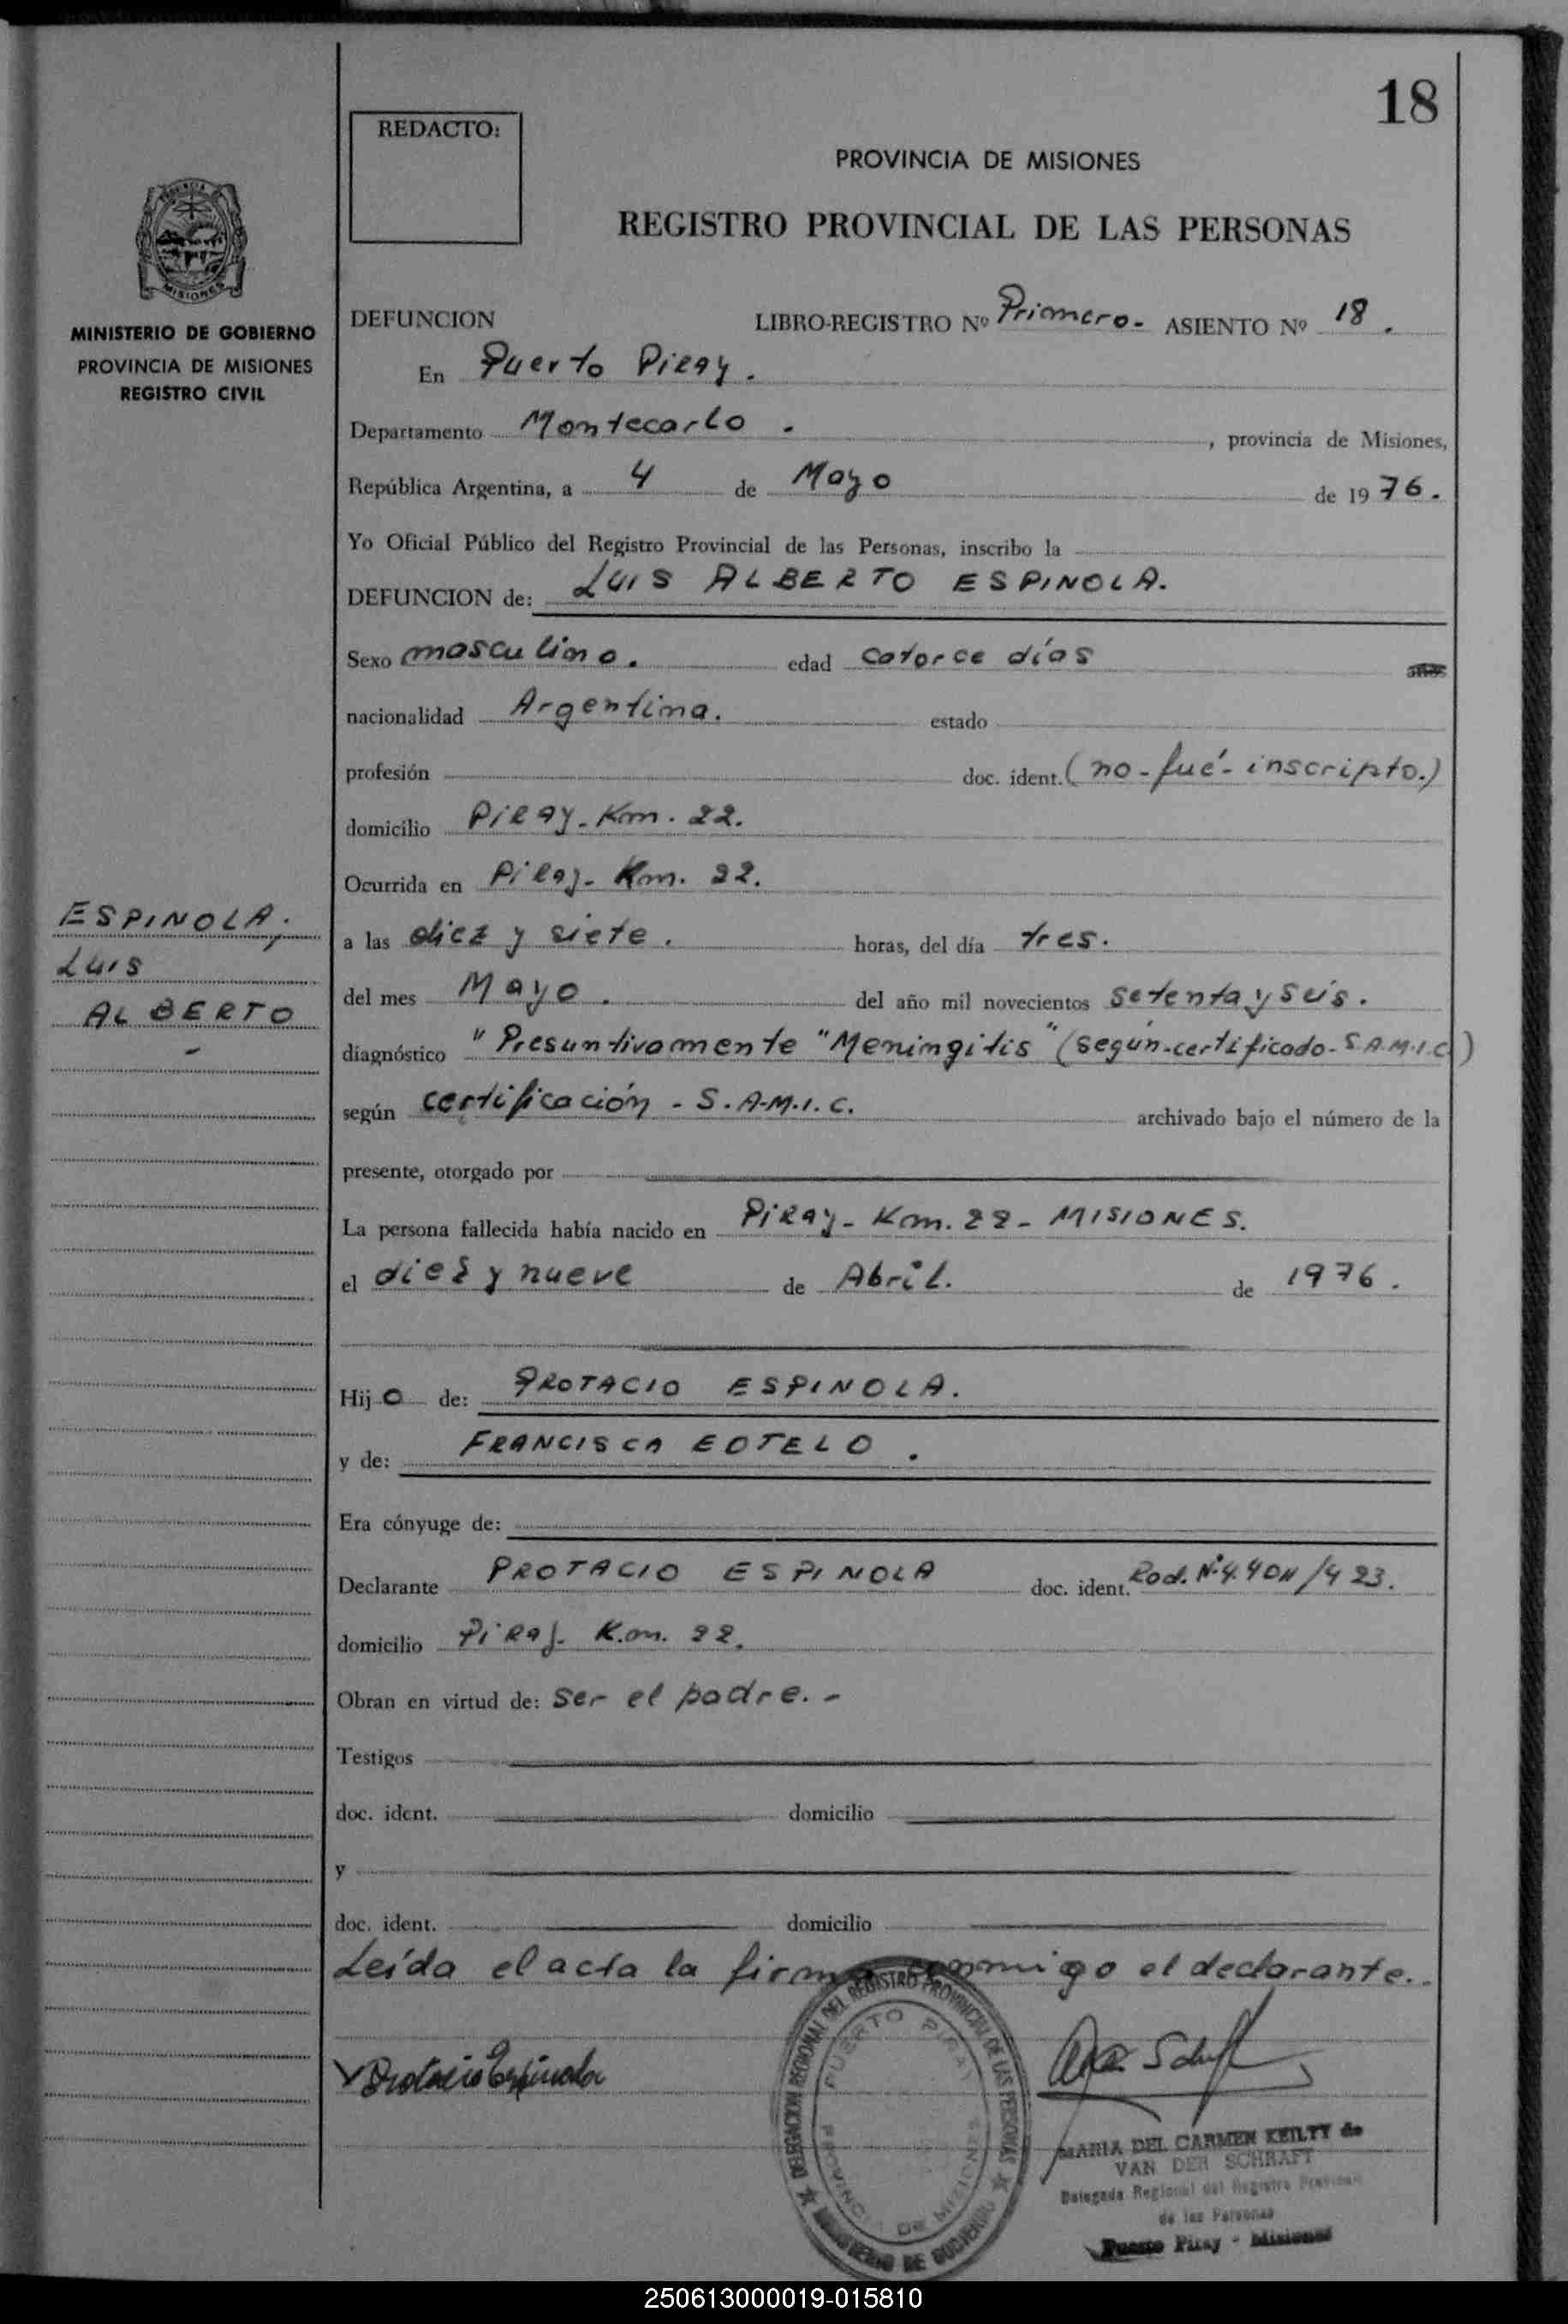 18
REDACTO:
PROVINCIA DE MISIONES
REGISTRO PROVINCIAL DE LAS PERSONAS
MISIONES
MINISTERIO DE GOBIERNO
PROVINCIA DE MISIONES
REGISTRO CIVIL
DEFUNCION LIBRO-REGISTRO Nº Primero.- ASIENTO Nº 18.
En Puerto Piray.
Departamento Montecarlo. , provincia de Misiones,
República Argentina, a 4 de Mayo de 1976.
Yo Oficial Público del Registro Provincial de las Personas, inscribo la
DEFUNCION de: LUIS ALBERTO ESPINOLA.
Sexo masculino. edad catorce días
nacionalidad Argentina. estado
profesión doc. ident. (no-fué-inscripto.)
domicilio Piray-Km. 22.
Ocurrida en Piray-Km. 22.
ESPINOLA,
LUIS
ALBERTO
-
a las diez y siete. horas, del día tres.
del mes Mayo. del año mil novecientos setenta y seis.
diagnóstico "Presuntivamente "Meningitis" (según-certificado-S.A.M.I.C.)
según certificación - S.A.M.I.C. archivado bajo el número de la
presente, otorgado por
La persona fallecida había nacido en Piray-Km. 22-MISIONES.
el diez y nueve de Abril. de 1976.
Hijo de: PROTACIO ESPINOLA.
y de: FRANCISCA EOTELO.
Era cónyuge de:
Declarante PROTACIO ESPINOLA doc. ident.
domicilio Piray- Km. 22.
Obran en virtud de: ser el padre.-
Testigos
doc. ident. domicilio
y
doc. ident. domicilio
Leída el acta la firma conmigo el declarante.
Protacio Espinola
DELEGACION REGIONAL DEL REGISTRO PROVINCIAL DE LAS PERSONAS
PUERTO PIRAY
PROVINCIA DE MISIONES
MINISTERIO DE GOBIERNO
MARIA DEL CARMEN KEILTY de
VAN DER SCHRAFT
Delegada Regional del Registro Provincial
de las Personas
Puerto Piray - Misiones
250613000019-015810